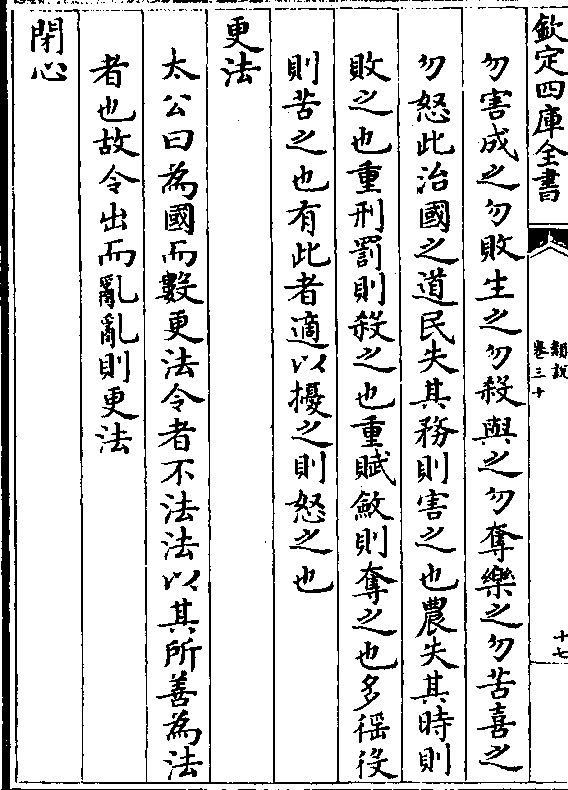 欽定四庫全書
類說
卷三十
十七
勿害成之勿敗生之勿殺與之勿奪樂之勿苦喜之
勿怒此治國之道民失其務則害之也農失其時則
敗之也重刑罰則殺之也重賦斂則奪之也多徭役
則苦之也有此者適以擾之則怒之也
更法
太公曰為國而數更法令者不法法以其所善為法
者也故令出而亂亂則更法
閉心